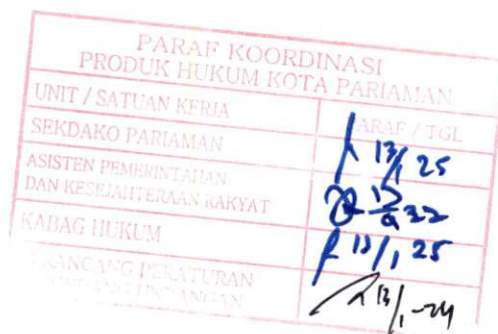 PARAF KOORDINASI
PRODUK HUKUM KOTA PARIAMAN
UNIT / SATUAN KERJA
PARAF / TGL
SEKDAKO PARIAMAN
13/1 25
ASISTEN PEMERINTAHAN
DAN KESEJAHTERAAN RAKYAT
KABAG HUKUM
13/1 25
PERANCANG PERATURAN
13/1 -24